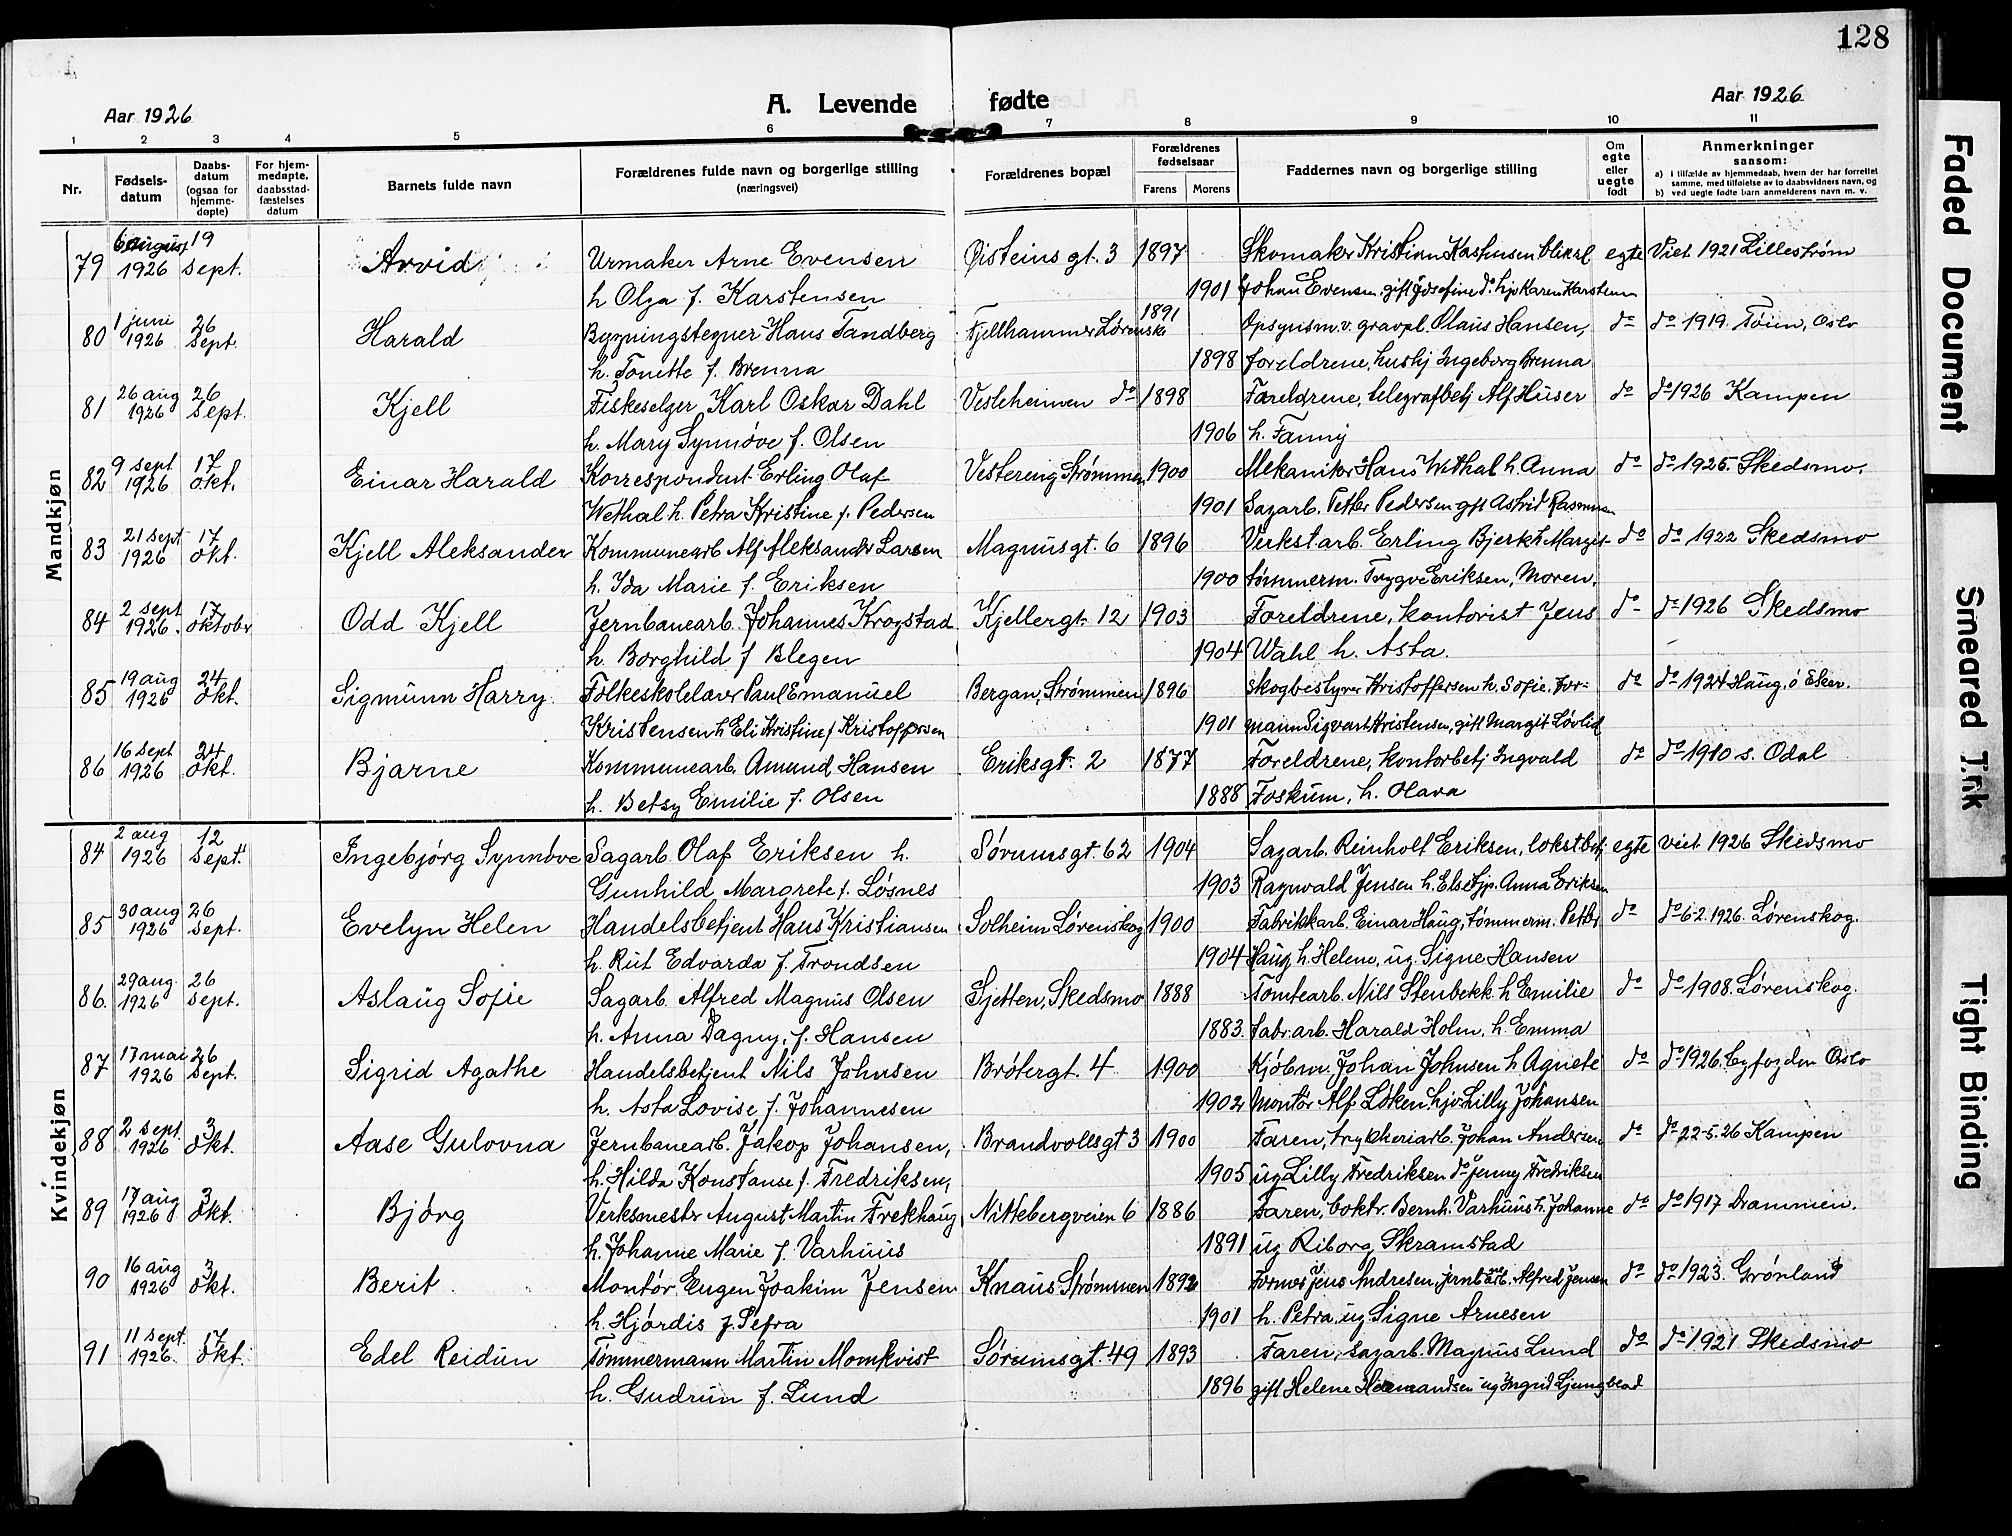 128
Aar 1926
A. Levende fødte
Aar 1926
1 2 3 4 5 6 7 8 9 10 11
Nr.
Fødsels-datum
Daabs-datum (ogsaa for hjemme-døpte)
For hjem-medøpte, daabsstad-fæstelses datum
Barnets fulde navn
Forældrenes fulde navn og borgerlige stilling (næringsvei)
Forældrenes bopæl
Forældrenes fødselsaar
Farens Morens
Faddernes navn og borgerlige stilling
Om egte eller uegte født
Anmerkninger
saasom:
a) i tilfælde av hjemmedaab, hvem der har forrettet samme, med tilføielse av to daabsvidners navn, og
b) ved uegte fødte barn anmelderens navn m. v.
Mandkjøn
79 6 august 1926 19 sept. Arvid Urmaker Arne Evensen Øisteins gt. 3 1897 Skomaker Kristian egte Viet 1921 Lillestrøm
h Olga f. Karstensen 1901 Johan Evensen, gift Josefine do hjv Karen Karstensen
80 1 juni 1926 26 sept. Harald Bygningstegner Hans Tandberg Fjellhammer Lørenskog 1891 Opsynsm. v. gravpl. Olaus Hansen, do do 1919. Tøien, Oslo
h. Tonette f. Brenna 1898 foreldrene, hushj Ingeborg Brenna
81 26 aug 1926 26 sept. Kjell Fiskeselger Karl Oskar Dahl Vesleheimen do 1898 Foreldrene, telegrafbetj Alf Huser do do 1926 Kampen
h. Mary Synnøve f. Olsen 1906 h. Fanny
82 9 sept 1926 17 okt. Einar Harald Korrespondent Erling Olaf Vestereng Strømmen 1900 Mekaniker Hans Wethal h. Anna do do 1925. Skedsmo.
Wethal h. Petra Kristine f. Pedersen 1901 Sagarb. Petter Pedersen gift Astrid Rasmussen
83 21 sept 1926 17 okt. Kjell Aleksander Kommunearb Alf Aleksander Larsen Magnusgt. 6 1896 Verkstarb. Erling Bjerk h. Margit do do 1922 Skedsmo
h. Ida Marie f. Eriksen 1900 tømmerm. Trygve Eriksen, Moren.
84 2 sept 1926. 17 oktober Odd Kjell Jernbanearb. Johannes Krogstad Kjellergt. 12 1903 Foreldrene, kontorist Jens do do 1926 Skedsmo
h. Borghild f Blegen 1904 Wahl h. Asta.
85 19 aug 1926 24 okt. Sigmunn Harry. Folkeskolelærer Paul Emanuel Bergan, Strømmen 1896 Skogbestyrer Kristoffersen h. Sofie. For- do do 1924 Haug, ø Eker.
Kristensen h Eli Kristine f Kristoffersen 1901 mann Sigvart Kristensen, gift Margit Løvlid
86 16 sept 1926 24 okt. Bjarne Kommunearb. Amund Hansen Eriksgt. 2 1877 Foreldrene, kontorbetj Ingvald do do 1910 s. Odal
h. Betsy Emilie f. Olsen 1888 Foskum, h. Olava
Kvindekjøn
84 2 aug 1926 12 sept. Ingebjørg Synnøve Sagarb. Olaf Eriksen h. Sørumsgt. 62 1904 Sagarb. Reinholt Eriksen, lokstbetj egte viet 1926 Skedsmo
Gunhild Margrete f. Løsnes 1903 Ragnvald Jensen h. Else Anna Eriksen
85 30 aug 1926 26 sept. Evelyn Helen Handelsbetjent Hans Kristiansen Solheim Lørenskog 1900 Fabrikkarb. Einar Haug, tømmerm. Petter do do 6-2. 1926. Lørenskog.
h. Rut Edvarda f. Trondsen 1904 Haug h. Helene, ug. Signe Hansen
86. 29 aug. 1926 26 sept. Aslaug Sofie Sagarb. Alfred Magnus Olsen Sjetten, Skedsmo 1888 Tomtearb. Nils Stenbekk h Emilie do do 1908. Lørenskog.
h. Anna Dagny, f. Hansen 1883. fabr. arb. Harald Holm, h. Emma
87 17 mai 1926 26 sept. Sigrid Agathe Handelsbetjent Nils Johnsen Brøtergt. 4 1900 Kjøbm. Johan Johnsen h Agnete do do 1926. byfogden Oslo
h. Asta Lovise f. Johannesen 1902 Montør Alf Løken, hjv. Lilly Johansen
88 2 sept. 1926 3 okt. Aase Gulovna Jernbanearb. Jakop Johansen, Brandvollsgt 3 1900 Faren, trykkeriarb. Johan Andersen do do 22-5. 26 Kampen
h. Hilda Konstanse f. Fredriksen, 1905 ug Lilly Fredriksen do Jenny Fredriksen
89 17 aug 1926 3 okt. Bjørg Verksmester August Martin Frekhaug Nittebergveien 6 1886 Faren, boktr. Bernh. Varhuus h. Johanne do do 1917 Drammen.
h. Johanne Marie f. Varhuus 1891 ug Riborg Skramstad
90 16 aug 1926 3 okt. Berit. Montør Eugen Joakim Jensen Knaus Strømmen 1892 Former Jens Andresen, jernbarb. Alfred Jensen do do 1923. Grønland
h. Hjørdis f. Sefra 1901 h. Petra, ug. Signe Arnesen
91 11 sept. 1926. 17 okt. Edel Reidun Tømmermann Martin Momkvist Sørumsgt. 49 1893 Faren, sagarb. Magnus Lund do do 1921 Skedsmo
h. Gudrun f. Lund 1896 gift Helene ug Ingrid Ljungblad
Faded Document
Smeared Ink
Tight Binding